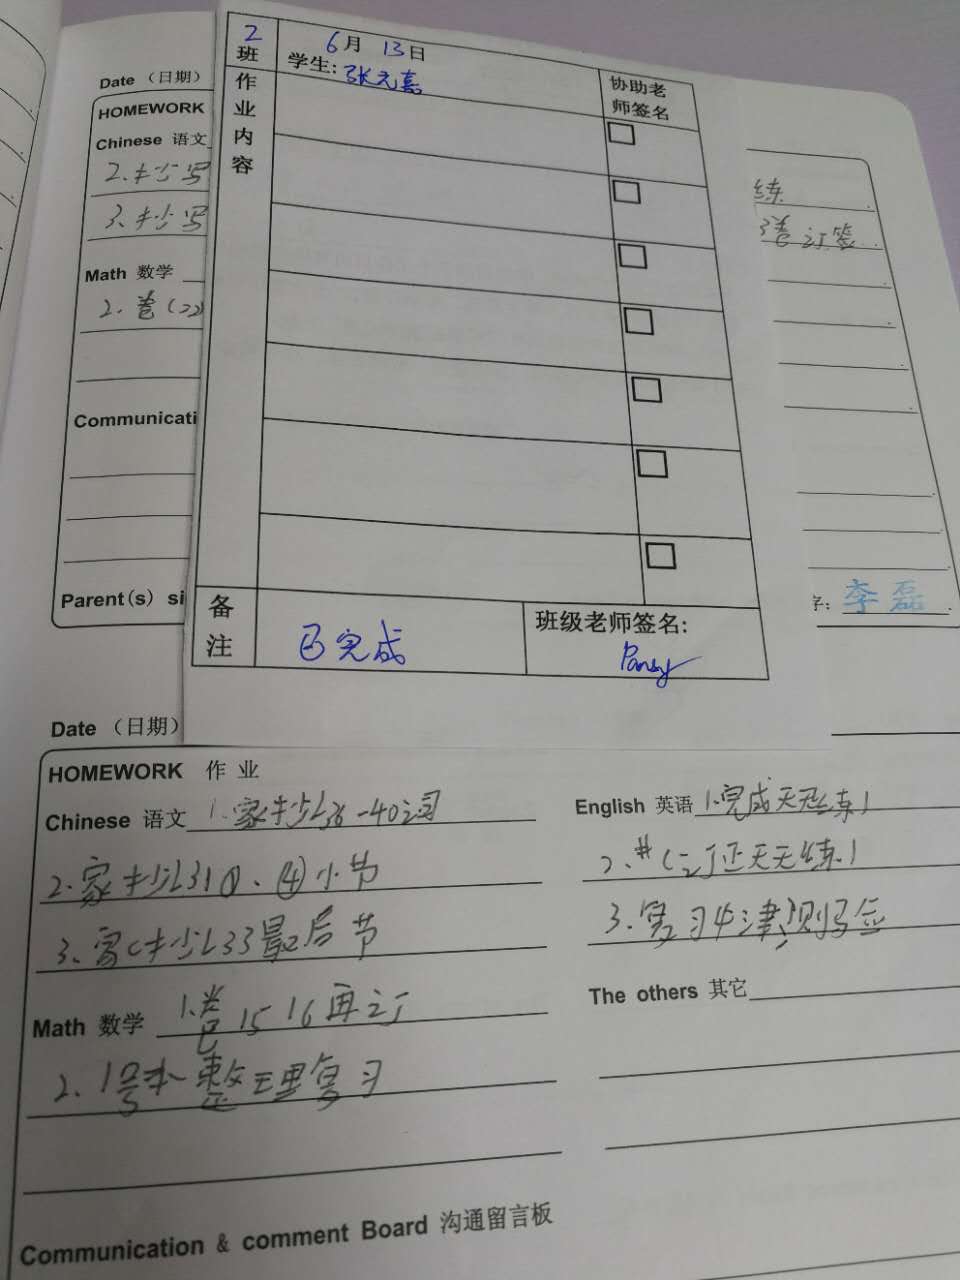 2班
6月 13日
学生: 张元嘉
协助老师签名
作业内容
备注
已完成
班级老师签名:
Pansy
Date （日期）
HOMEWORK
Chinese 语文
2.抄写
3.抄写
Math 数学
2.卷(22)
Communicati
Parent(s) si
练
3卷订签
字: 李磊
Date （日期）
HOMEWORK 作 业
Chinese 语文 1.家抄36-40词
2.家抄31①、④小节
3.家抄33最后节
Math 数学 1.卷15 16再订
2.1号本整理复习
English 英语 1.完成天天练1
2.#(订正天天练1
3.复习
The others 其它
Communication & comment Board 沟通留言板